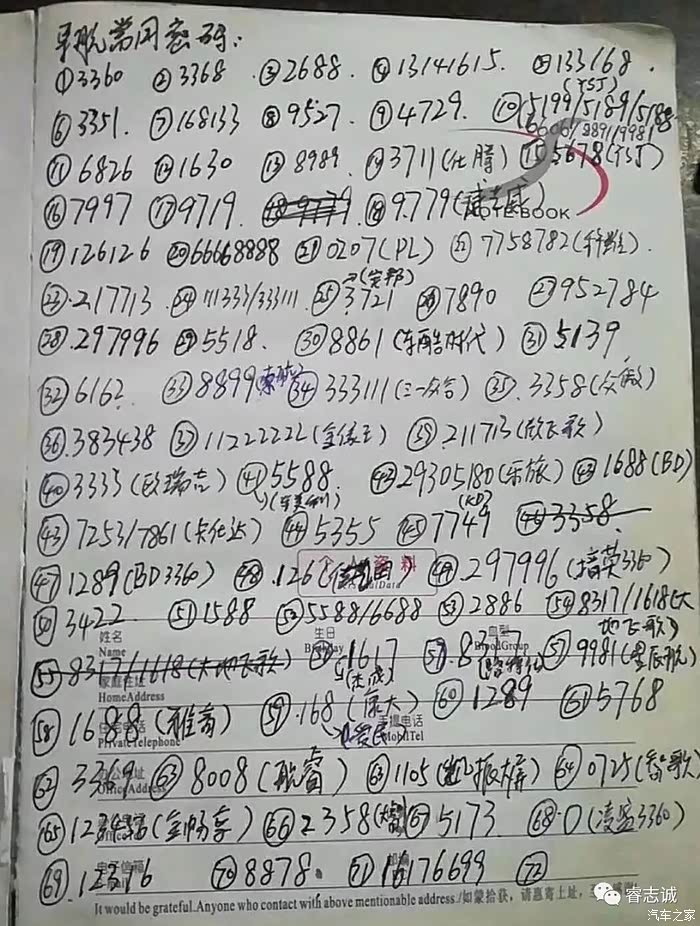 车航常用密码:
①3360 ②3368 ③2688 ④13141615. ⑤133168.
(TSJ)
⑥3351. ⑦168133 ⑧9527 ⑨4729. ⑩5199/5189/5188
6606/9891/9981
⑪6826 ⑫1630 ⑬8989 ⑭3711(仕腾) ⑮5678(TSJ)
⑯7997 ⑰9719 ⑱9779
NOTEBOOK
⑲126126 ⑳66668888 ㉑0207(PL) 7758782
㉓217713 ㉔111333/333111 ㉕3721 7890 ㉗952784
㉘297996 ㉙5518. ㉚8861(车酷时代) ㉛5139
㉜6162 ㉝8899 ㉞333111(三一众合) ㉟3358
㊱383438 ㊲11222222 211713(欣飞歌)
㊵3333(欧瑞吉) ㊶5588 ㊷29305180(乐旅) 1688(BD)
㊸7253/7861(卡仕达) ㊹5355 ㊺7749 ㊻3358
(KD)
个人资料
PersonalData
㊼1289(BD3360) ㊽126 ㊾297996(3360)
㊿3422 51 1588 52 5588/6688 53 2886 54 8317/1618(大地飞歌)
姓名 生日 血型
Name Birthday BloodGroup
55 8317/1618(大地飞歌) 1617 57 8317 57 9981(星辰航)
家庭住址
HomeAddress
58 1688(雅高) 59 168(康大) 60 1289 61 5768
住宅电话 手提电话
PrivateTelephone MobilTel
62 3369 63 8008(航睿) 63 1105(凯振大屏) 64 0725(智歌)
办公地址
OfficeAddress
65 (金畅享) 66 2358 67 5173 68 0(凌盛3360)
69 70 8878 71 16176699 72
电子信箱 邮编
It would be grateful.Anyone who contact with above mentionable address./如蒙拾获，请惠寄上址，
睿志诚
汽车之家